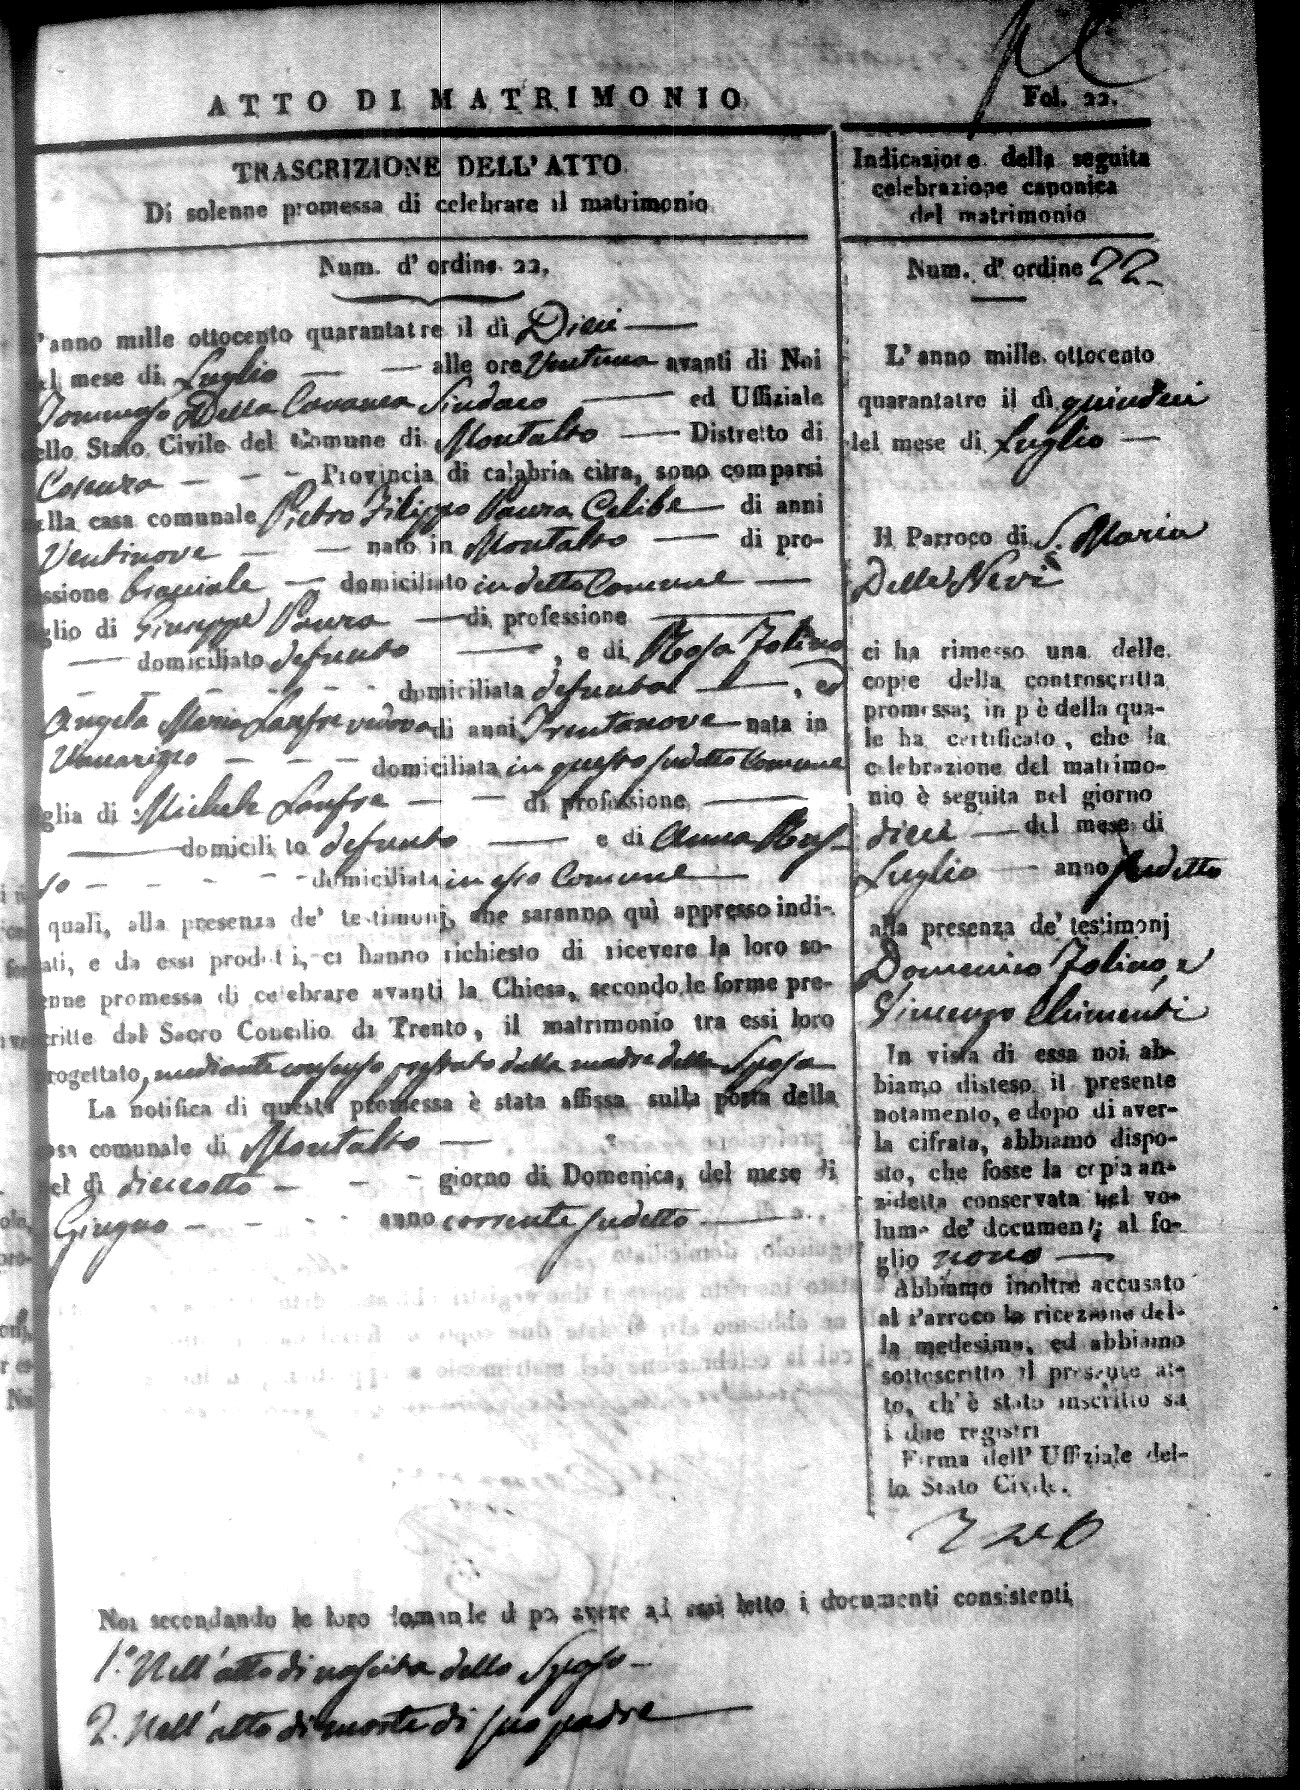 ATTO DI MATRIMONIO
Fol. 22.
TRASCRIZIONE DELL' ATTO
Di solenne promessa di celebrare il matrimonio
Num. d' ordine 22.
'anno mille ottocento quarantatre il dì Dieci
el mese di Luglio alle ore Ventuna avanti di Noi
Tommaso Della Cananea Sindaco ed Uffiziale
ello Stato Civile del Comune di Montalto Distretto di
Cosenza Provincia di calabria citra, sono comparsi
ella casa comunale Pietro Filippo Paura Celibe di anni
Ventinove nato in Montalto di pro-
ssione bracciale domiciliato in detto Comune
glio di Giuseppe Paura di professione
domiciliato defunto , e di Rosa Tolino
domiciliata defunta , ed
Angela Maria Lanfre vedova di anni Trentanove nata in
domiciliata in questo sudetto Comune
glia di Michele Lanfre di professione
domicili to defunto e di Anna Rus-
so domiciliata in esso Comune
quali, alla presenza de' testimonj, che saranno quì appresso indi-
ati, e da essi prodot i, ci hanno richiesto di ricevere la loro so-
enne promessa di celebrare avanti la Chiesa, secondo le forme pre-
critte dal Sacro Concilio di Trento, il matrimonio tra essi loro
rogettato, mediante consenso prestato dalla madre della Sposa
La notifica di questa promessa è stata affissa sulla porta della
asa comunale di Montalto
el dì dieciotto giorno di Domenica, del mese di
Giugno anno corrente sudetto
Noi secondando le loro domande d po avere ad essi letto i documenti consistenti
1.° Nell'atto di nascita dello Sposo
2. Nell'atto di morte di suo padre
Indicazione della seguita
celebrazione canonica
del matrimonio
Num. d' ordine 22
L' anno mille ottocento
quarantatre il dì quindici
del mese di Luglio
Il Parroco di S. Maria
Delle Nevi
ci ha rimesso una delle
copie della controscritta
promessa; in p è della qua-
le ha certificato, che la
celebrazione del matrimo-
nio è seguita nel giorno
dieci del mese di
Luglio anno sudetto
alla presenza de' testimonj
Domenico Tolino, e
Vincenzo Chimenti
In vista di essa noi ab-
biamo disteso il presente
notamento, e dopo di aver-
la cifrata, abbiamo dispo-
sto, che fosse la copia an-
zidetta conservata nel vo-
lume de' documenti al fo-
glio nono
Abbiamo inoltre accusato
al Parroco la ricezione del-
la medesima, ed abbiamo
sottoscritto il presente at-
to, ch' è stato inscritto su
i due registri
Firma dell' Uffiziale del-
lo Stato Civile.